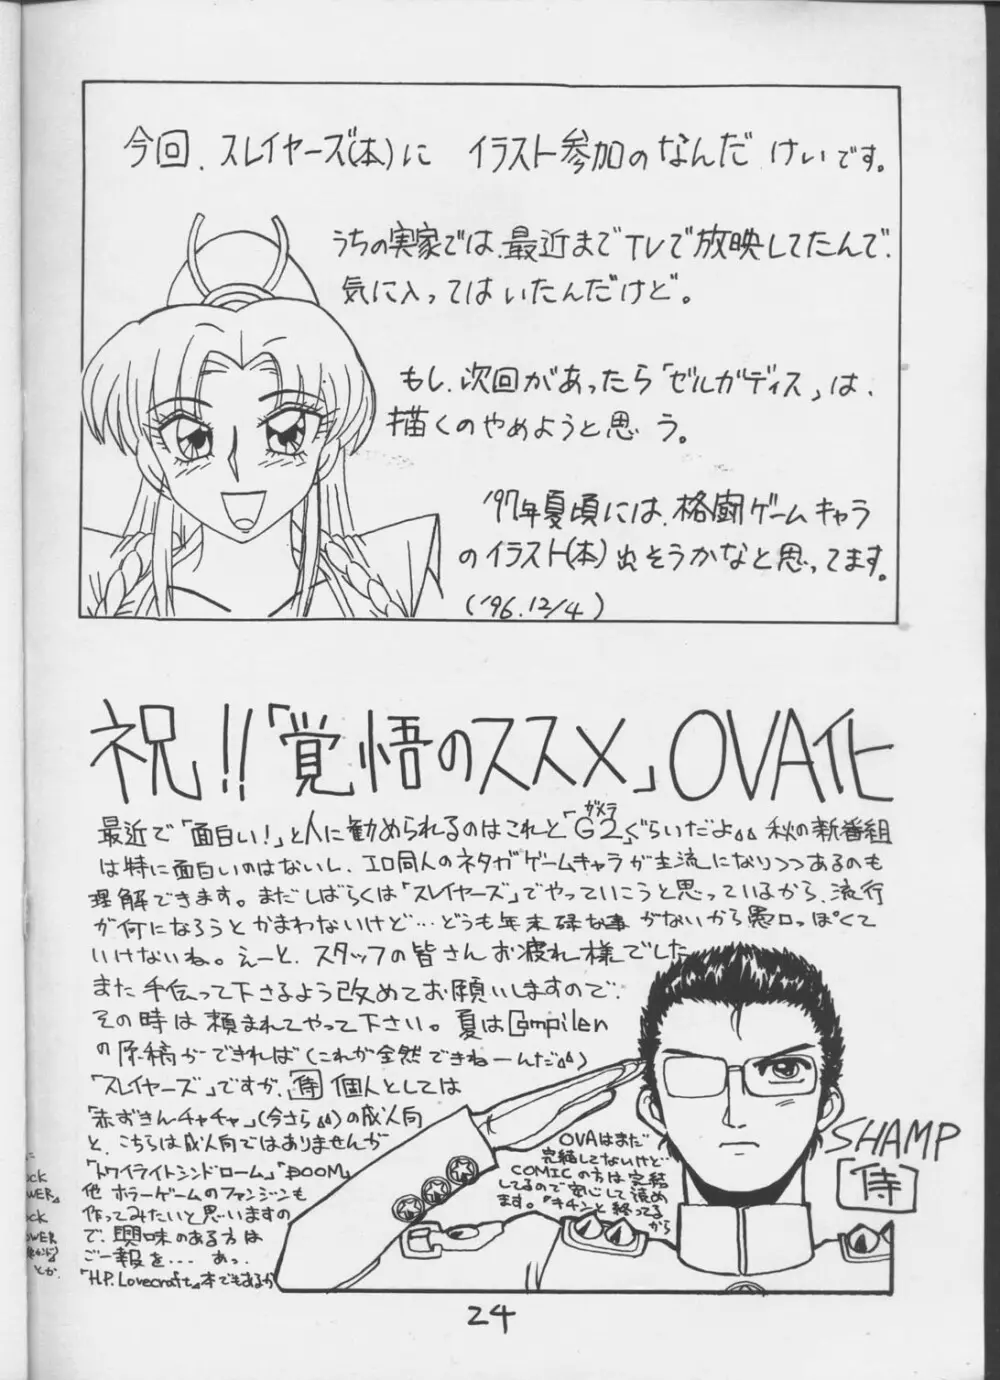 今回、スレイヤーズ(本)に イラスト参加のなんだ けいです。
うちの実家では、最近までTVで放映してたんで、
気に入ってはいたんだけど。
もし、次回があったら「ゼルガディス」は、
描くのやめようと思う。
'97年夏頃には、格闘ゲームキャラ
のイラスト(本)出そうかなと思ってます。
('96.12/4)
祝!!「覚悟のススメ」OVA化
最近で「面白い!」と人に勧められるのはこれと「G2」ぐらいだよ 秋の新番組
ガメラ
は特に面白いのはないし、エロ同人のネタがゲームキャラが主流になりつつあるのも
理解できます。まだしばらくは「スレイヤーズ」でやっていこうと思っているから、流行
が何になろうとかまわないけど…どうも年末碌な事がないから愚口っぽくて
いけないね。えーと、スタッフの皆さんお疲れ様でした
また手伝って下さるよう改めてお願いしますので、
その時は頼まれてやって下さい。夏はCompilen
の原稿ができれば(これが全然できねーんだ)
「スレイヤーズ」ですが、侍個人としては
「赤ずきんチャチャ」(今さら)の成人向
と、こちらは成人向ではありませんが
「トワイライトシンドローム」「DOOM」
他ホラーゲームのファンジンも
作ってみたいと思いますの
で、興味のある方は
ご一報を… あっ、
「H.P.Lovecraft」本でもあるか
OVAはまだ
完結してないけど
COMICの方は完結
してるので安心して読め
ます。「キチンと終ってる」から
SHAMP
侍
24